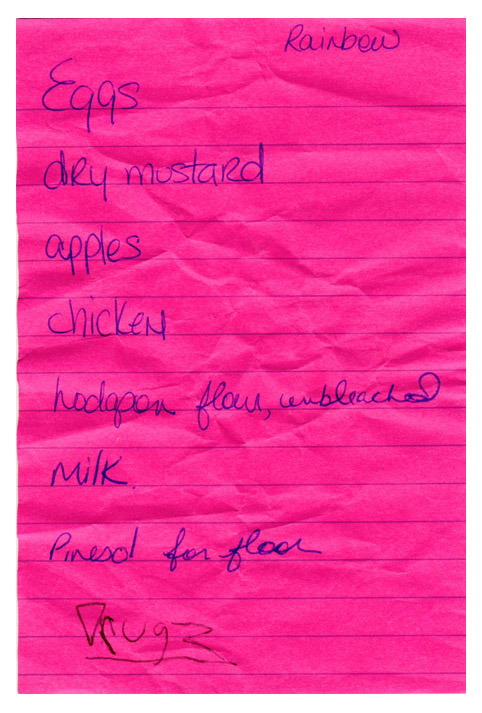 Rainbow
Eggs
dry mustard
apples
chicken
hodgson flour, unbleached
Milk.
Pinesol for floor
Drugz